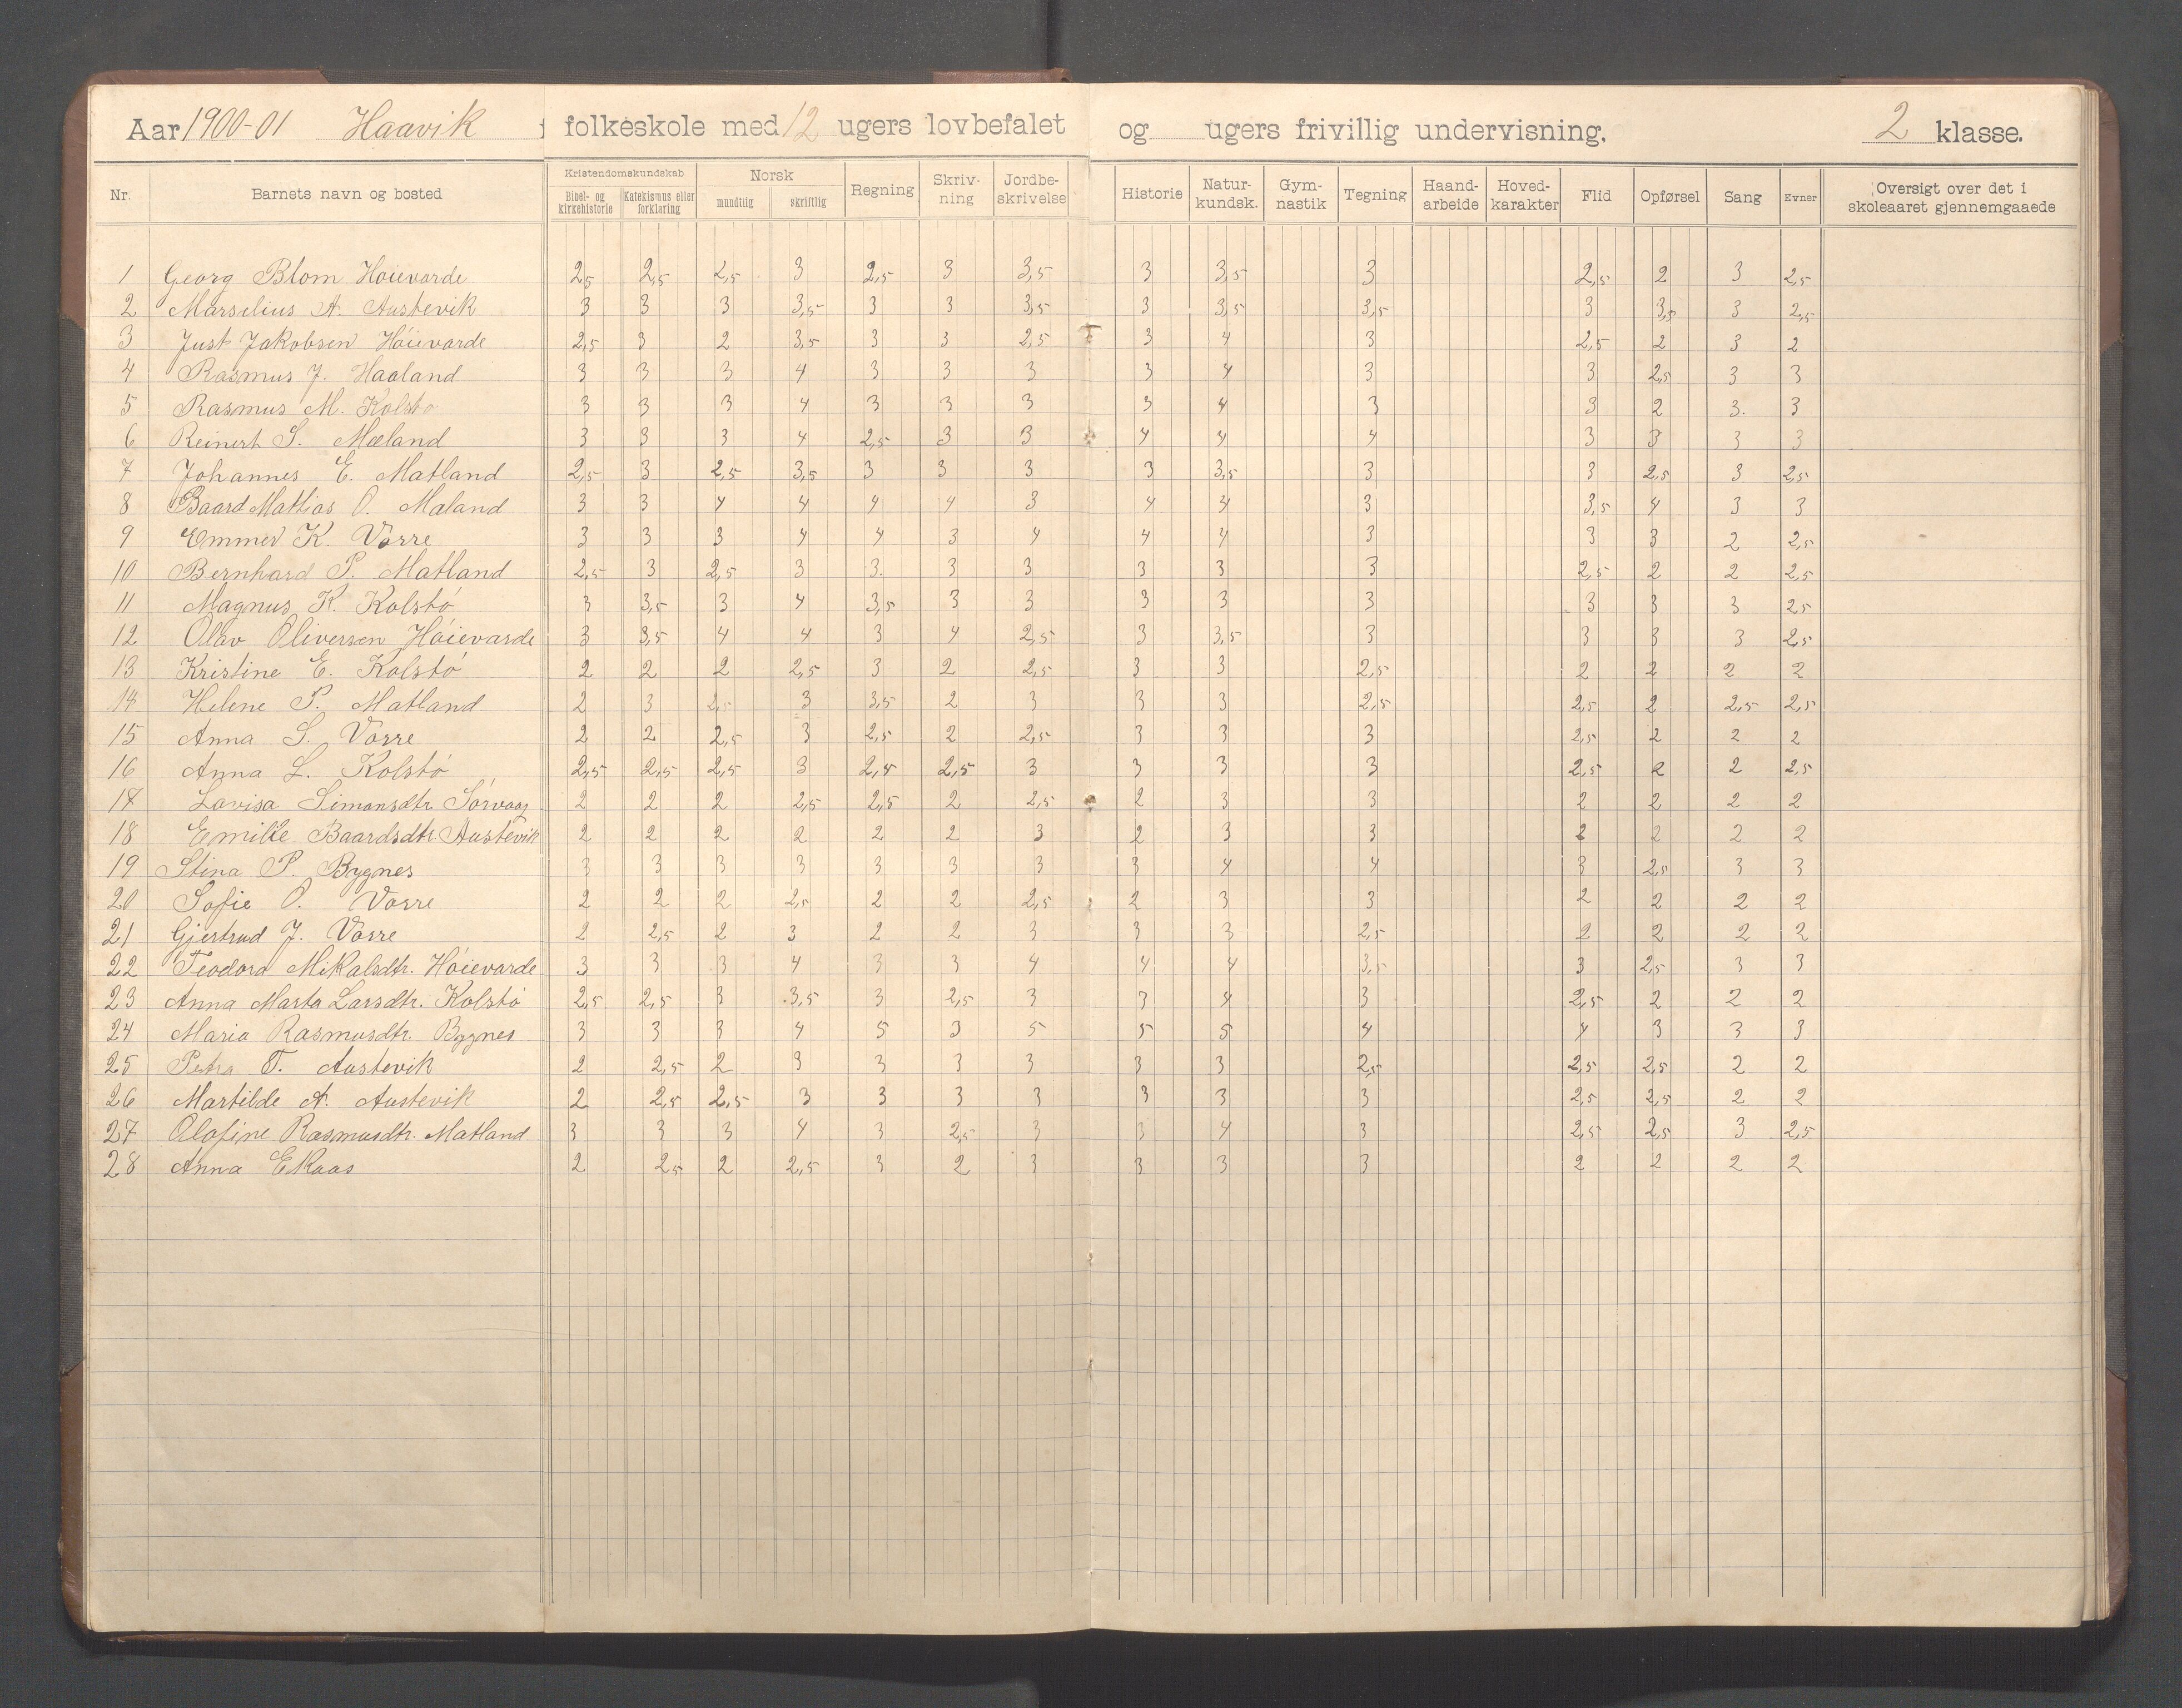 Aar 1900-01 Haavik folkeskole med 12 ugers lovbefalet og ugers frivillig undervisning. 2 klasse.
Nr. Barnets navn og bosted Kristendomskundskab Bibel- og kirkehistorie Katekismus eller forklaring Norsk mundtlig skriftlig Regning Skriv-ning Jordbe-skrivelse Historie Natur-kundsk. Gym-nastik Tegning Haand-arbeide Hoved-karakter Flid Opførsel Sang Evner Oversigt over det i skoleaaret gjennemgaaede
1 Georg Blom Høievarde 2,5 2,5 2,5 3 2,5 3 3,5 3 3,5 3 2,5 2 3 2,5
2 Marselius A. Austevik 3 3 3 3,5 3 3 3,5 3 3,5 3,5 3 3,5 3 2,5
3 Just Jakobsen Høievarde 2,5 3 2 3,5 3 3 2,5 3 4 3 2,5 2 3 2
4 Rasmus J. Haaland 3 3 3 4 3 3 3 3 4 3 3 2,5 3 3
5 Rasmus M. Kolstø 3 3 3 4 3 3 3 3 4 3 3 2 3. 3
6 Reinert S. Mæland 3 3 3 4 2,5 3 3 4 4 4 3 3 3 3
7 Johannes E. Matland 2,5 3 2,5 3,5 3 3 3 3 3,5 3 3 2,5 3 2,5
8 Baard Mattias O. Maland 3 3 4 4 4 4 3 4 4 3 3,5 4 3 3
9 Emmer K. Vorre 3 3 3 4 4 3 4 4 4 3 3 3 2 2,5
10 Bernhard P. Matland 2,5 3 2,5 3 3. 3 3 3 3 3 2,5 2 2 2,5
11 Magnus K. Kolstó 3 3,5 3 4 3,5 3 3 3 3 3 3 3 3 2,5
12 Olav Oliversen Hóievarde 3 3,5 4 4 3 4 2,5 3 3,5 3 3 3 3 2,5
13 Kristine E. Kolstó 2 2 2 2,5 3 2 2,5 3 3 2,5 2 2 2 2
14 Helene P. Matland 2 3 2,5 3 3,5 2 3 3 3 2,5 2,5 2 2,5 2,5
15 Anna S. Vorre 2 2 2,5 3 2,5 2 2,5 3 3 3 2,5 2 2 2
16 Anna L. Kolstó 2,5 2,5 2,5 3 2,5 2,5 3 3 3 3 2,5 2 2 2,5
17 Lovisa Simonsdtr. Sórvaag 2 2 2 2,5 2,5 2 2,5 2 3 3 2 2 2 2
18 Emilie Baardsdtr. Austevik 2 2 2 2 2 2 3 2 3 3 2 2 2 2
19 Stina P. Bygnes 3 3 3 3 3 3 3 3 4 4 3 2,5 3 3
20 Sofie O. Vorre 2 2 2 2,5 2 2 2,5 2 3 3 2 2 2 2
21 Gjertrud J. Vorre 2 2,5 2 3 2 2 3 3 3 2,5 2 2 2 2
22 Teodora Mikalsdtr. Hóievarde 3 3 3 4 3 3 4 4 4 3,5 3 2,5 3 3
23 Anna Marta Larsdtr. Kolstó 2,5 2,5 3 3,5 3 2,5 3 3 4 3 2,5 2 2 2
24 Maria Rasmusdtr. Bygnes 3 3 3 4 5 3 5 5 5 4 4 3 3 3
25 Petra T. Austevik 2 2,5 2 3 3 3 3 3 3 2,5 2,5 2,5 2 2
26 Martilde A. Austevik 2 2,5 2,5 3 3 3 3 3 3 3 2,5 2,5 2 2
27 Olafine Rasmusdtr. Matland 3 3 3 4 3 2,5 3 3 4 3 2,5 2,5 3 2,5
28 Anna Ekaas 2 2,5 2 2,5 3 2 3 3 3 3 2 2 2 2